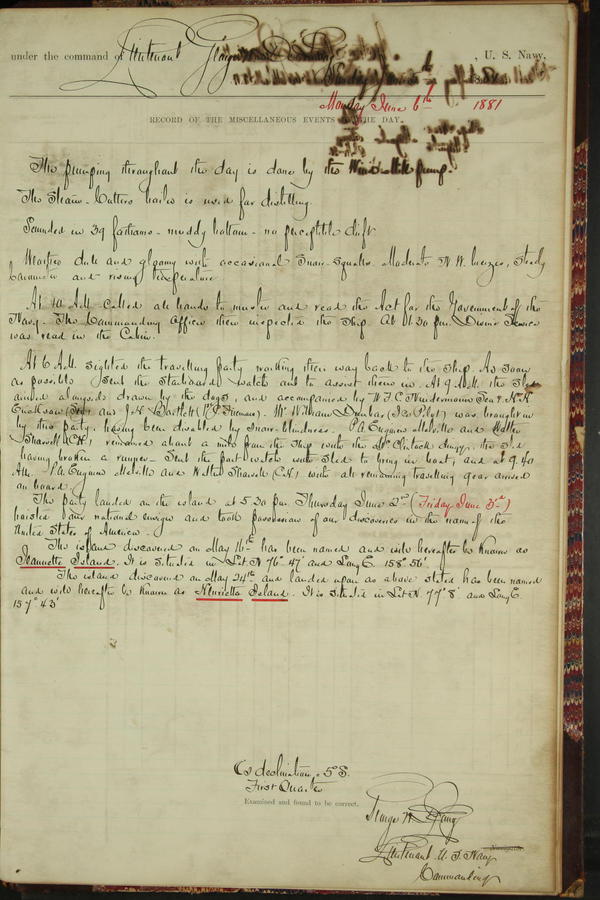 under the command of Lieutenant George W. De Long, U. S. Navy,
Monday June 6th 1881
RECORD OF THE MISCELLANEOUS EVENTS OF THE DAY.
The pumping throughout the day is done by the Windmill pump.
The Steam-Cutters boiler is used for distilling.
Sounded in 39 fathoms - muddy bottom - no perceptible drift
Weather dull and gloomy with occasional Snow-Squalls. Moderate N.W. breezes, steady
barometer and rising temperature
At 10 A.M. called all hands to muster and read the Act for the Government of the
Navy. The Commanding Officer then inspected the Ship. At 1.30 p.m. Divine Service
was read in the Cabin.
At 6 A.M. sighted the travelling party working their way back to the Ship. As soon
as possible I sent the starboard watch out to assist them in. At 9 A.M. the Sled
arrived alongside drawn by the dogs, and accompanied by W.F.C. Nindermann Sea & H.H.
Erickson (Sea) and J.H. Bartlett (1st C. Fireman). Mr. William Dunbar (Ice Pilot) was brought in
by this party, having been disabled by snow-blindness. P.A. Engineer Melville and Walter
Sharvell (C.H.) remained about a mile from the Ship with the McClintock dingy, the Sled
having broken a runner. Sent the port watch with sled to bring in boat, and at 9.40
A.M. P.A. Engineer Melville and Walter Sharvell (C.H.) with all remaining travelling gear arrived
on board.
The party landed on the island at 5.30 p.m. Thursday June 2nd (Friday June 3rd)
hoisted our national ensign and took possession of our discoveries in the name of the
United States of America.
The island discovered on May 16th has been named and will hereafter be known as
Jeannette Island. It is situated in Lat. N 76° 47' and Long E. 158° 56'
The island discovered on May 24th and landed upon as above stated has been named
and will hereafter be known as Henrietta Island. It is situated in Lat N. 77° 8' and Long E.
157° 43'
declination 5° S.
First Quarter
Examined and found to be correct.
George W. De Long
Navigator.
Lieutenant U. S. Navy
Commanding